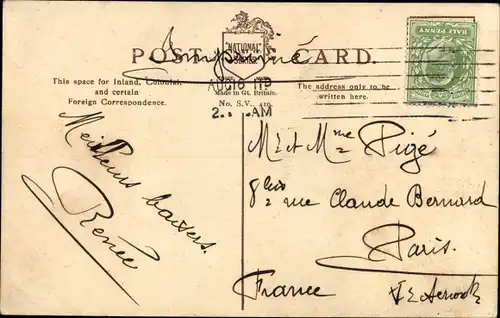 POST CARD.
Imprimé
"NATIONAL"
This space for Inland, Colonial,
and certain
Foreign Correspondence.
Made in Gt. Britain.
No. S.V.
The address only to be
written here.
AM
HALF PENNY
Meilleurs baisers.
Renée
M. et Mme Pigé
8 bis rue Claude Bernard
Paris.
France